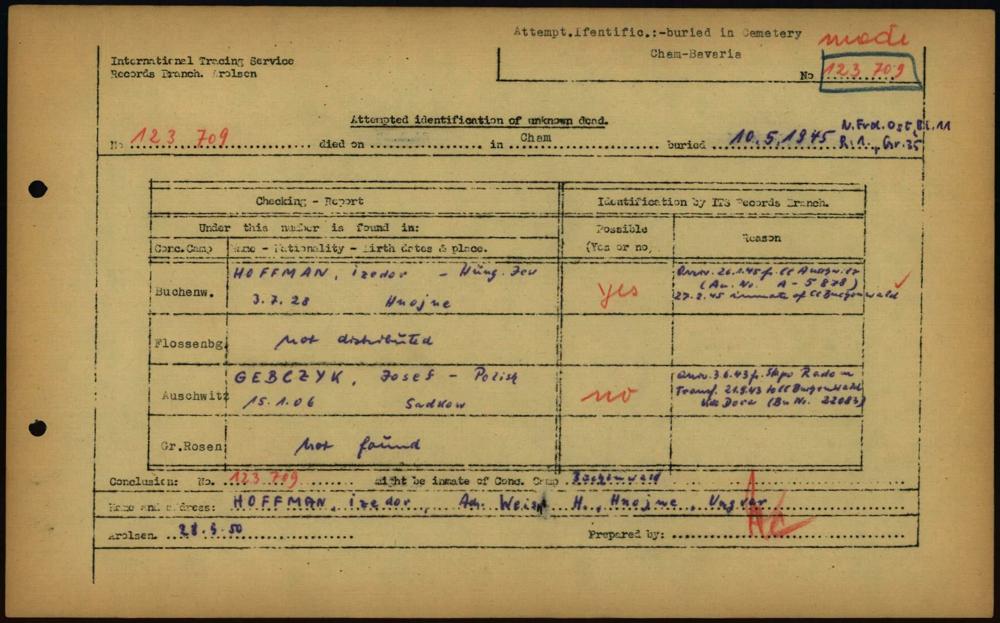 Attempt.Ifentific.:-buried in Cemetery
Cham-Bavaria
made
International Tracing Service
Records Branch. Arolsen
No 123 709
Attempted identification of unknown dead.
No 123 709 died on in Cham buried 10.5.1945 N.Frd.Ost, Bl.11
R.1., Gr.35
Checking - Report
Identification by ITS Records Branch.
Under this number is found in:
Possible
(Yes or no)
Reason
Conc.Camp
Name - Nationality - Birth dates & place.
Buchenw.
HOFFMAN, Izedor - Hung. Jew
3.7.28 Hnojne
yes
26.1.45 f. CC
(Au. No. A-5878)
27.2.45 inmate of CC
Flossenbg.
not distributed
Auschwitz
GEBCZYK, Josef - Polish
15.1.06 Sadkow
no
3.6.43 f. Stapo Radom
Transf. 21.9.43 to CC
Dora (Bu Nr. 22083)
Gr.Rosen
not found
Conclusion: No. 123.709 might be inmate of Conc. Camp
Name and address: HOFFMAN, Izedor, H., Hnojne, Ungvar
Arolsen. 28.9.50 Prepared by: